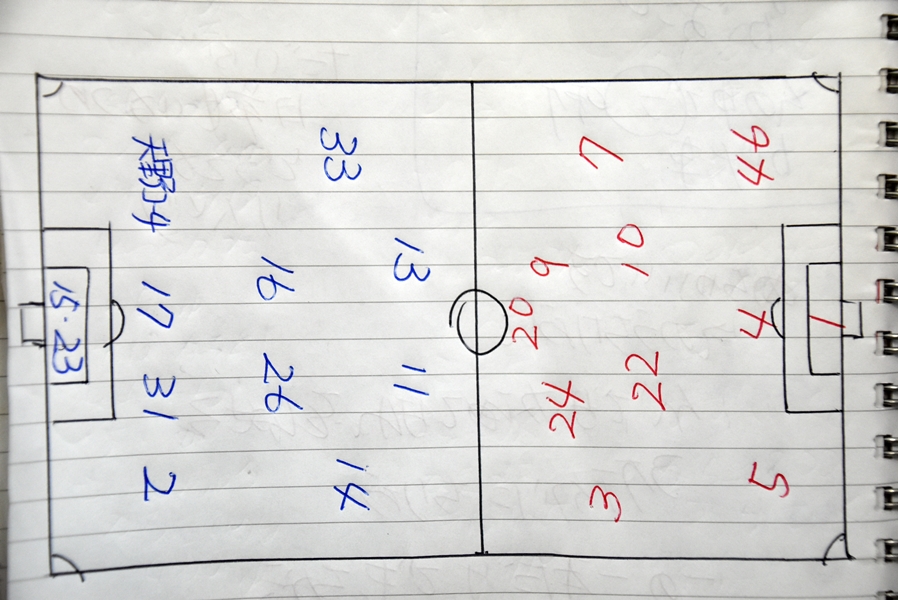 33
13
11
14
16
26
17
31
2
15・23
9
20
24
7
10
22
3
44
4
5
1